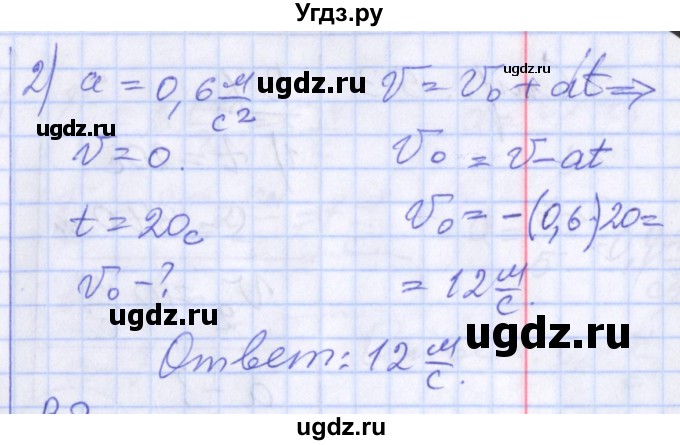 Угдз.ру
2) a = 0,6 м/с² ugdz.ru v = v₀ + at ⇒
ugdz.ru
v = 0. v₀ = v - at
t = 20с v₀ = -(0,6)20 =
ugdz.ru
v₀ - ? = 12 м/с.
ugdz.ru
ugdz.ru
Ответ: 12 м/с.
ugdz.ru